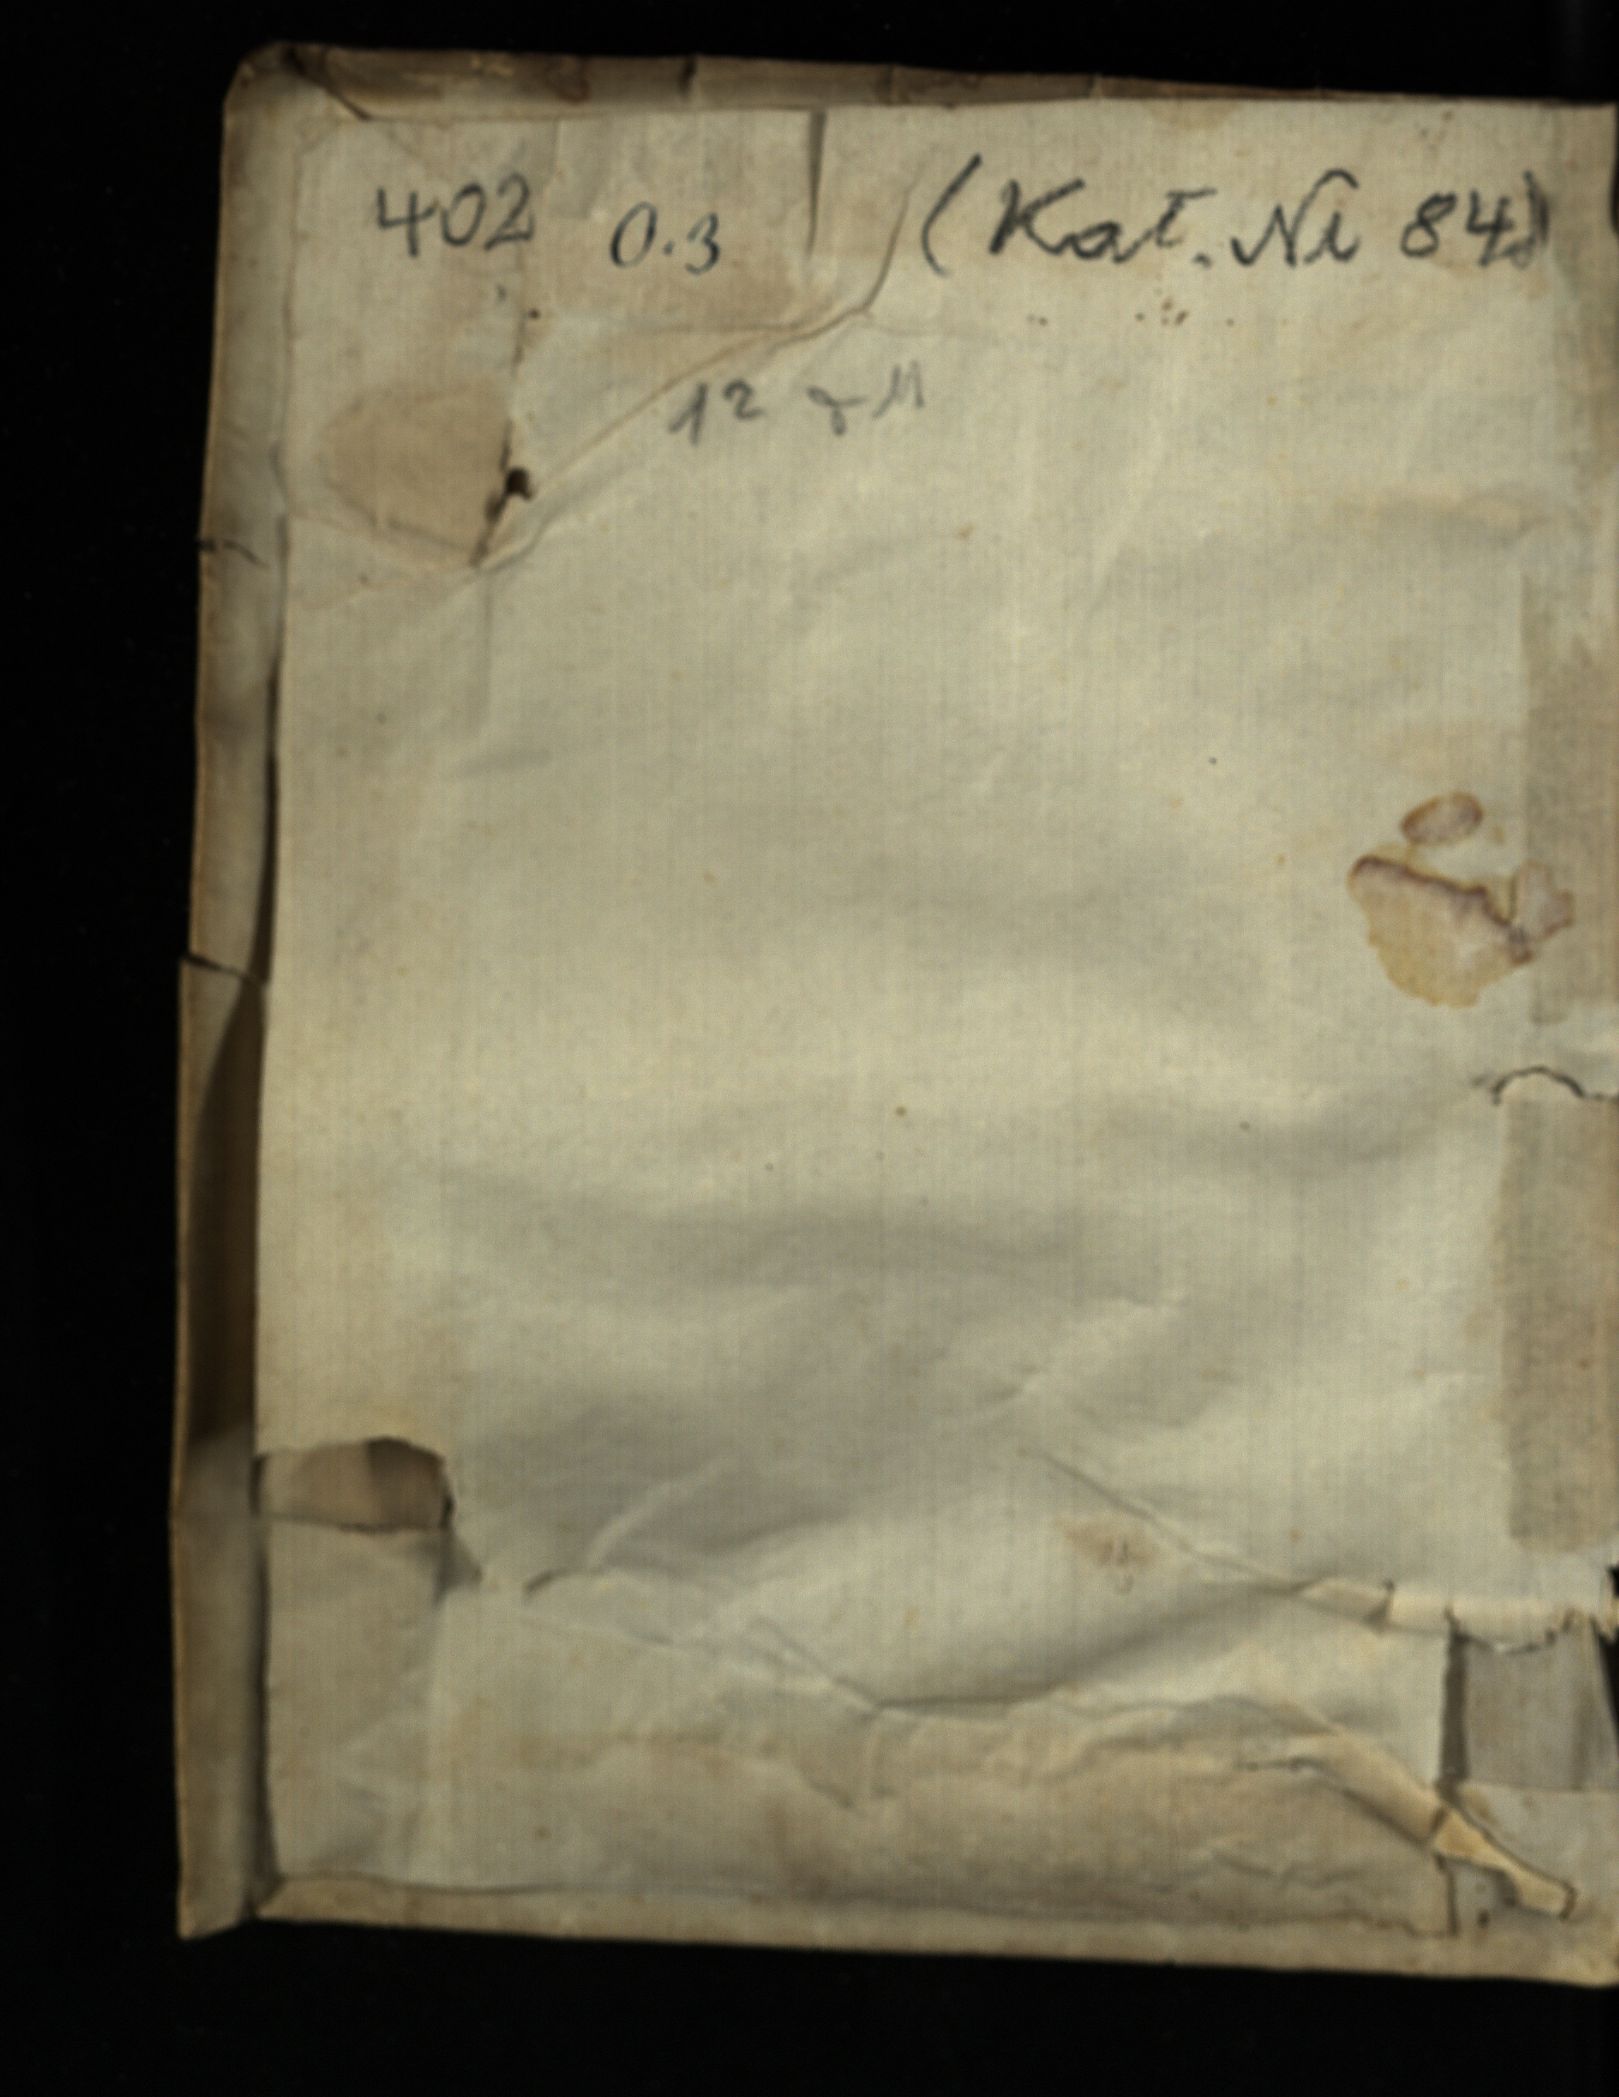 402 0.3 (Kat. Nr 84)
12